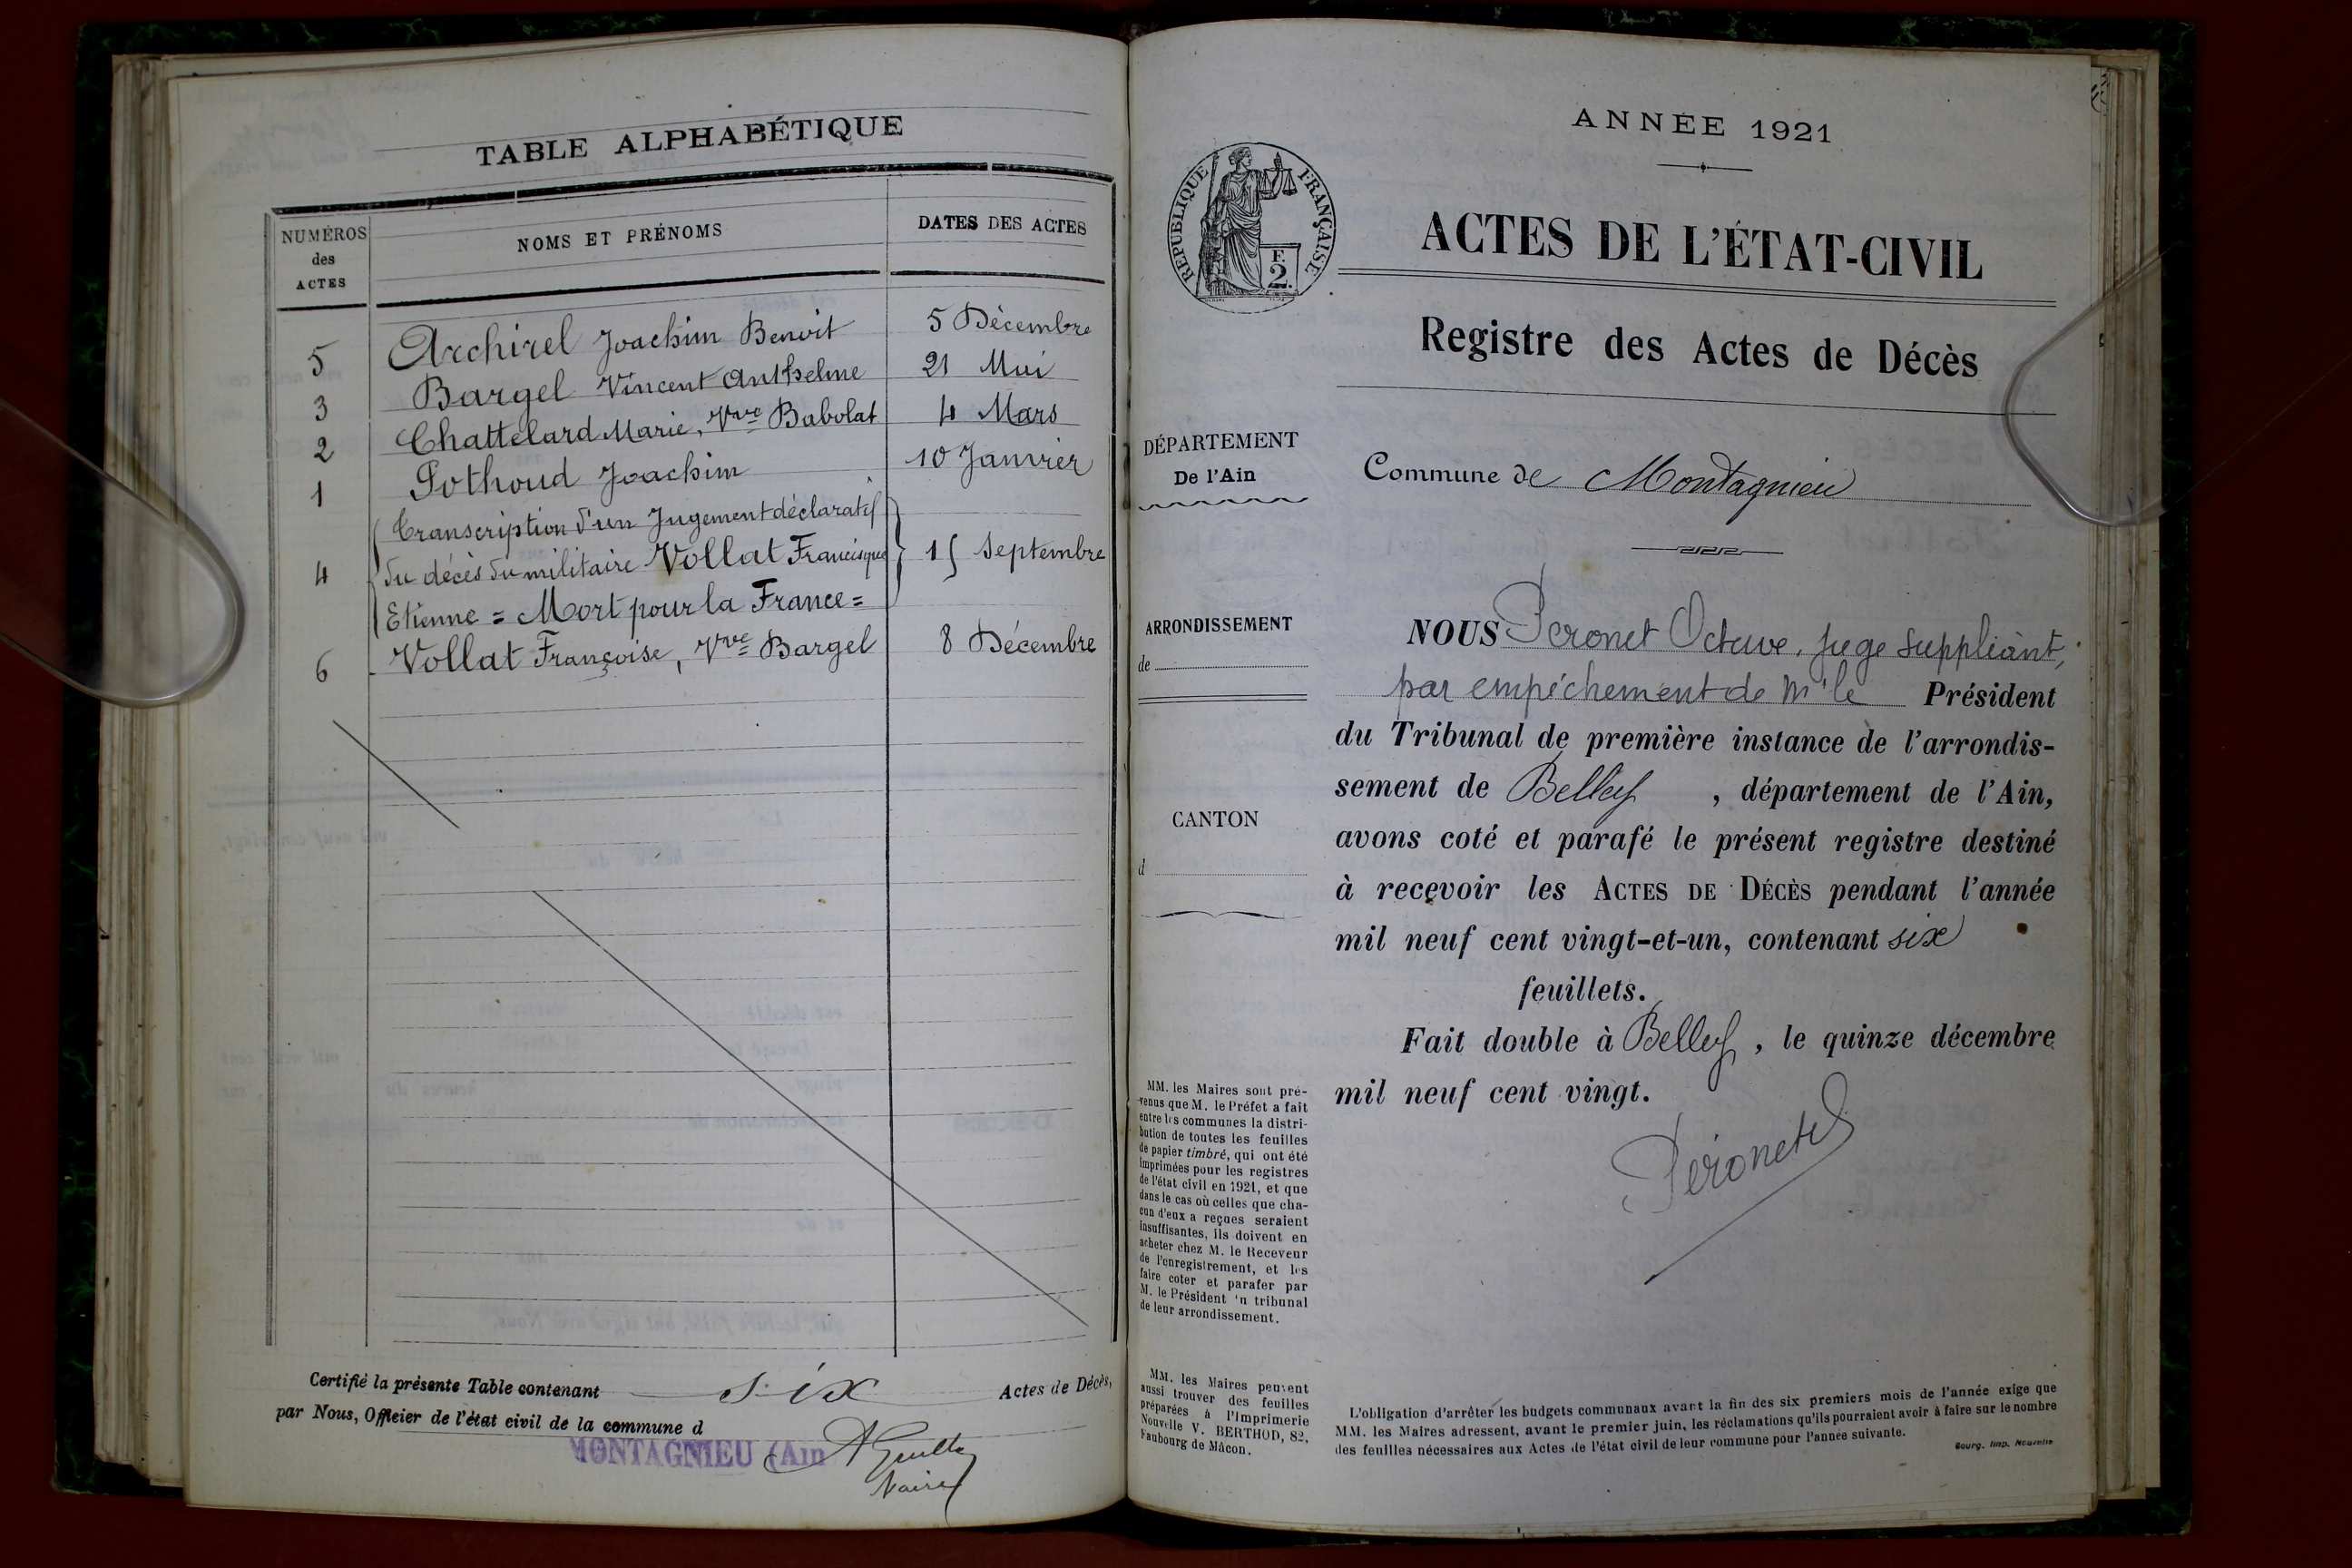 TABLE ALPHABÉTIQUE
NUMÉROS
des
ACTES
NOMS ET PRÉNOMS
DATES DES ACTES
5 Archirel Joachim Benoit 5 Décembre
3 Bargel Vincent Anthelme 21 Mai
2 Chattelard Marie, Vve Babolat 4 Mars
1 Pothoud Joachim 10 Janvier
Transcription d'un Jugement déclaratif
4 du décès du militaire Vollat Francisque 15 Septembre
Etienne = Mort pour la France =
6 Vollat Françoise, Vve Bargel 8 Décembre
Certifié la présente Table contenant six Actes de Décès,
par Nous, Officier de l'état civil de la commune d
MONTAGNIEU (Ain
Maire
ANNÉE 1921
RÉPUBLIQUE FRANÇAISE
F.
2.
ACTES DE L'ÉTAT-CIVIL
Registre des Actes de Décès
DÉPARTEMENT
De l'Ain
Commune de Montagnieu
ARRONDISSEMENT
de
CANTON
d
NOUS Peronet Octave, Juge suppléant,
par empêchement de Mr le Président
du Tribunal de première instance de l'arrondis-
sement de Belley , département de l'Ain,
avons coté et parafé le présent registre destiné
à recevoir les ACTES DE DÉCÈS pendant l'année
mil neuf cent vingt-et-un, contenant six
feuillets.
Fait double à Belley , le quinze décembre
mil neuf cent vingt.
Péronet
MM. les Maires sont pré-
venus que M. le Préfet a fait
entre les communes la distri-
bution de toutes les feuilles
de papier timbré, qui ont été
imprimées pour les registres
de l'état civil en 1921, et que
dans le cas où celles que cha-
cun d'eux a reçues seraient
insuffisantes, ils doivent en
acheter chez M. le Receveur
de l'enregistrement, et les
faire coter et parafer par
M. le Président 'n tribunal
de leur arrondissement.
MM. les Maires peuvent
aussi trouver des feuilles
préparées à l'Imprimerie
Nouvelle V. BERTHOD, 82,
Faubourg de Mâcon.
L'obligation d'arrêter les budgets communaux avant la fin des six premiers mois de l'année exige que
MM. les Maires adressent, avant le premier juin, les réclamations qu'ils pourraient avoir à faire sur le nombre
des feuilles nécessaires aux Actes de l'état civil de leur commune pour l'année suivante.
Bourg. Imp. Nouvelle